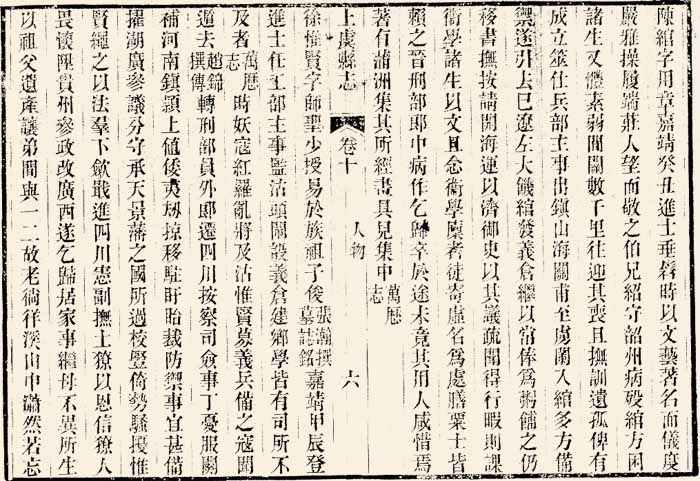 陳綰字用章嘉靖癸丑進士垂髫時以文藝著名而儀度
嚴雅操履端莊人望而敬之伯兄紹守韶州病殁綰方困
諸生又體素弱間關數千里往迎其喪且撫訓遺孤俾有
成立筮仕兵部主事出鎮山海關甫至虜闌入綰多方備
禦遂引去已遼左大饑綰發義倉繼以常俸為粥餔之仍
移書撫按請開海運以濟御史以其議疏聞得行暇則課
衛學諸生以文且念衛學廩者徒寄虛名為處膳粟士皆
賴之晉刑部郎中病作乞歸卒於途未竟其用人咸惜焉
著有蒲洲集其所經畫具見集中萬歷志
上虞縣志 卷十 人物 六
徐惟賢字師聖少授易於族祖子俊張瀚撰墓誌銘嘉靖甲辰登
進士任工部主事監沽頭閘設義倉建鄉學皆有司所不
及者萬歷志時妖寇紅羅亂將及沽惟賢募義兵備之寇聞
遁去趙錦撰傳轉刑部員外郎遷四川按察司僉事丁憂服闋
補河南鎮潁上值倭夷刼掠移駐盱眙裁防禦事宜甚備
擢湖廣參議分守承天景藩之國所過校豎倚勢騷擾惟
賢繩之以法羣下歛戢進四川憲副撫土獠以恩信獠人
畏懷陞貴州參政改廣西遂乞歸居家事繼母不異所生
以祖父遺產讓弟間與一二故老徜徉溪山中瀟然若忘